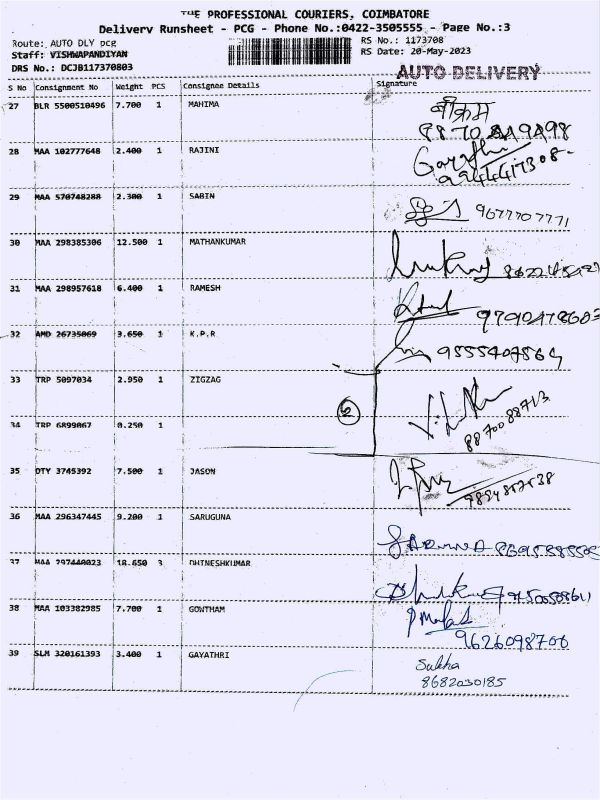 THE PROFESSIONAL COURIERS, COIMBATORE
Delivery Runsheet - PCG - Phone No.:0422-3505555 - Page No.:3
Route: AUTO DLY pcg RS No.: 1173708
Staff: VISHWAPANDIYAN RS Date: 20-May-2023
DRS No.: DCJB117370803 AUTO DELIVERY
S No Consignment No Weight PCS Consignee Details Signature
27 BLR 5500510496 7.700 1 MAHIMA
28 MAA 102777648 2.400 1 RAJINI
29 MAA 570748288 2.300 1 SABIN 9677707771
30 MAA 298385306 12.500 1 MATHANKUMAR
31 MAA 298957618 6.400 1 RAMESH
32 AMD 26735069 3.650 1 K.P.R 9555407564
33 TRP 5097034 2.950 1 ZIGZAG
8870088713
34 TRP 6899067 0.250 1
35 DTY 3745392 7.500 1 JASON
36 MAA 296347445 9.200 1 SARUGUNA
37 MAA 297440023 18.650 3 DHINESHKUMAR
38 MAA 103382985 7.700 1 GOWTHAM
9626098700
39 SLM 320161393 3.400 1 GAYATHRI Sukha
8682030185